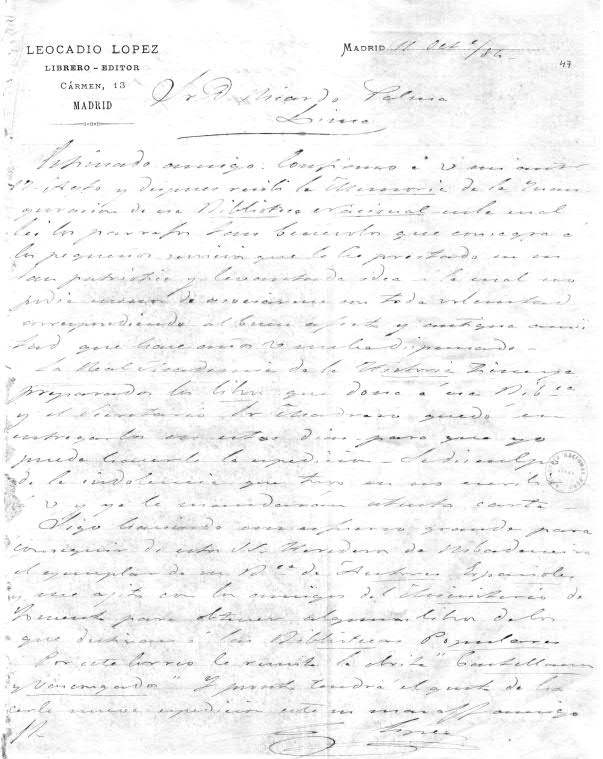 LEOCADIO LOPEZ
LIBRERO - EDITOR
CÁRMEN, 13
MADRID
MADRID 11 Oct e/84
47
Sr D Ricardo Palma
Lima
Estimado amigo: Confirmo á V mi
Agto y despues recibí la Memoria de la Inau
guracion de esa Biblioteca Nacional en la cual
leí los parrafos tan benevolos que consagra á
los pequeños servicios que le he prestado en su
tan patriotica y levantada idea á la cual no
podia menos de asociarme con toda voluntad
correspondiendo al buen afecto y antigua amis
tad que hace años V me ha dispensado -
La Real Academia de la Historia tiene ya
preparados los libros que dona á esa Bib.ca
y el Secretario Sr Madrazo quedó en
entregarlos en estos dias para que yo
pueda hacerle la expedicion - Se disculpa
de la indolencia que tuvo en no escribir
á V y ya le mandarán atenta carta -
Sigo haciendo un esfuerzo grande para
conseguir de estos SS. Herederos de Ribadeneira
el ejemplar de su B.ca de Autores Españoles
y con los amigos del Ministerio de
Fomento para obtener algunos libros de los
que destinan á las Bibliotecas Populares
Por este correo le remito la obrita "Castellanos
y Vascongados" Y pronto tendrá el gusto de ha
cerle nueva expedicion este su amigo
L. Lopez